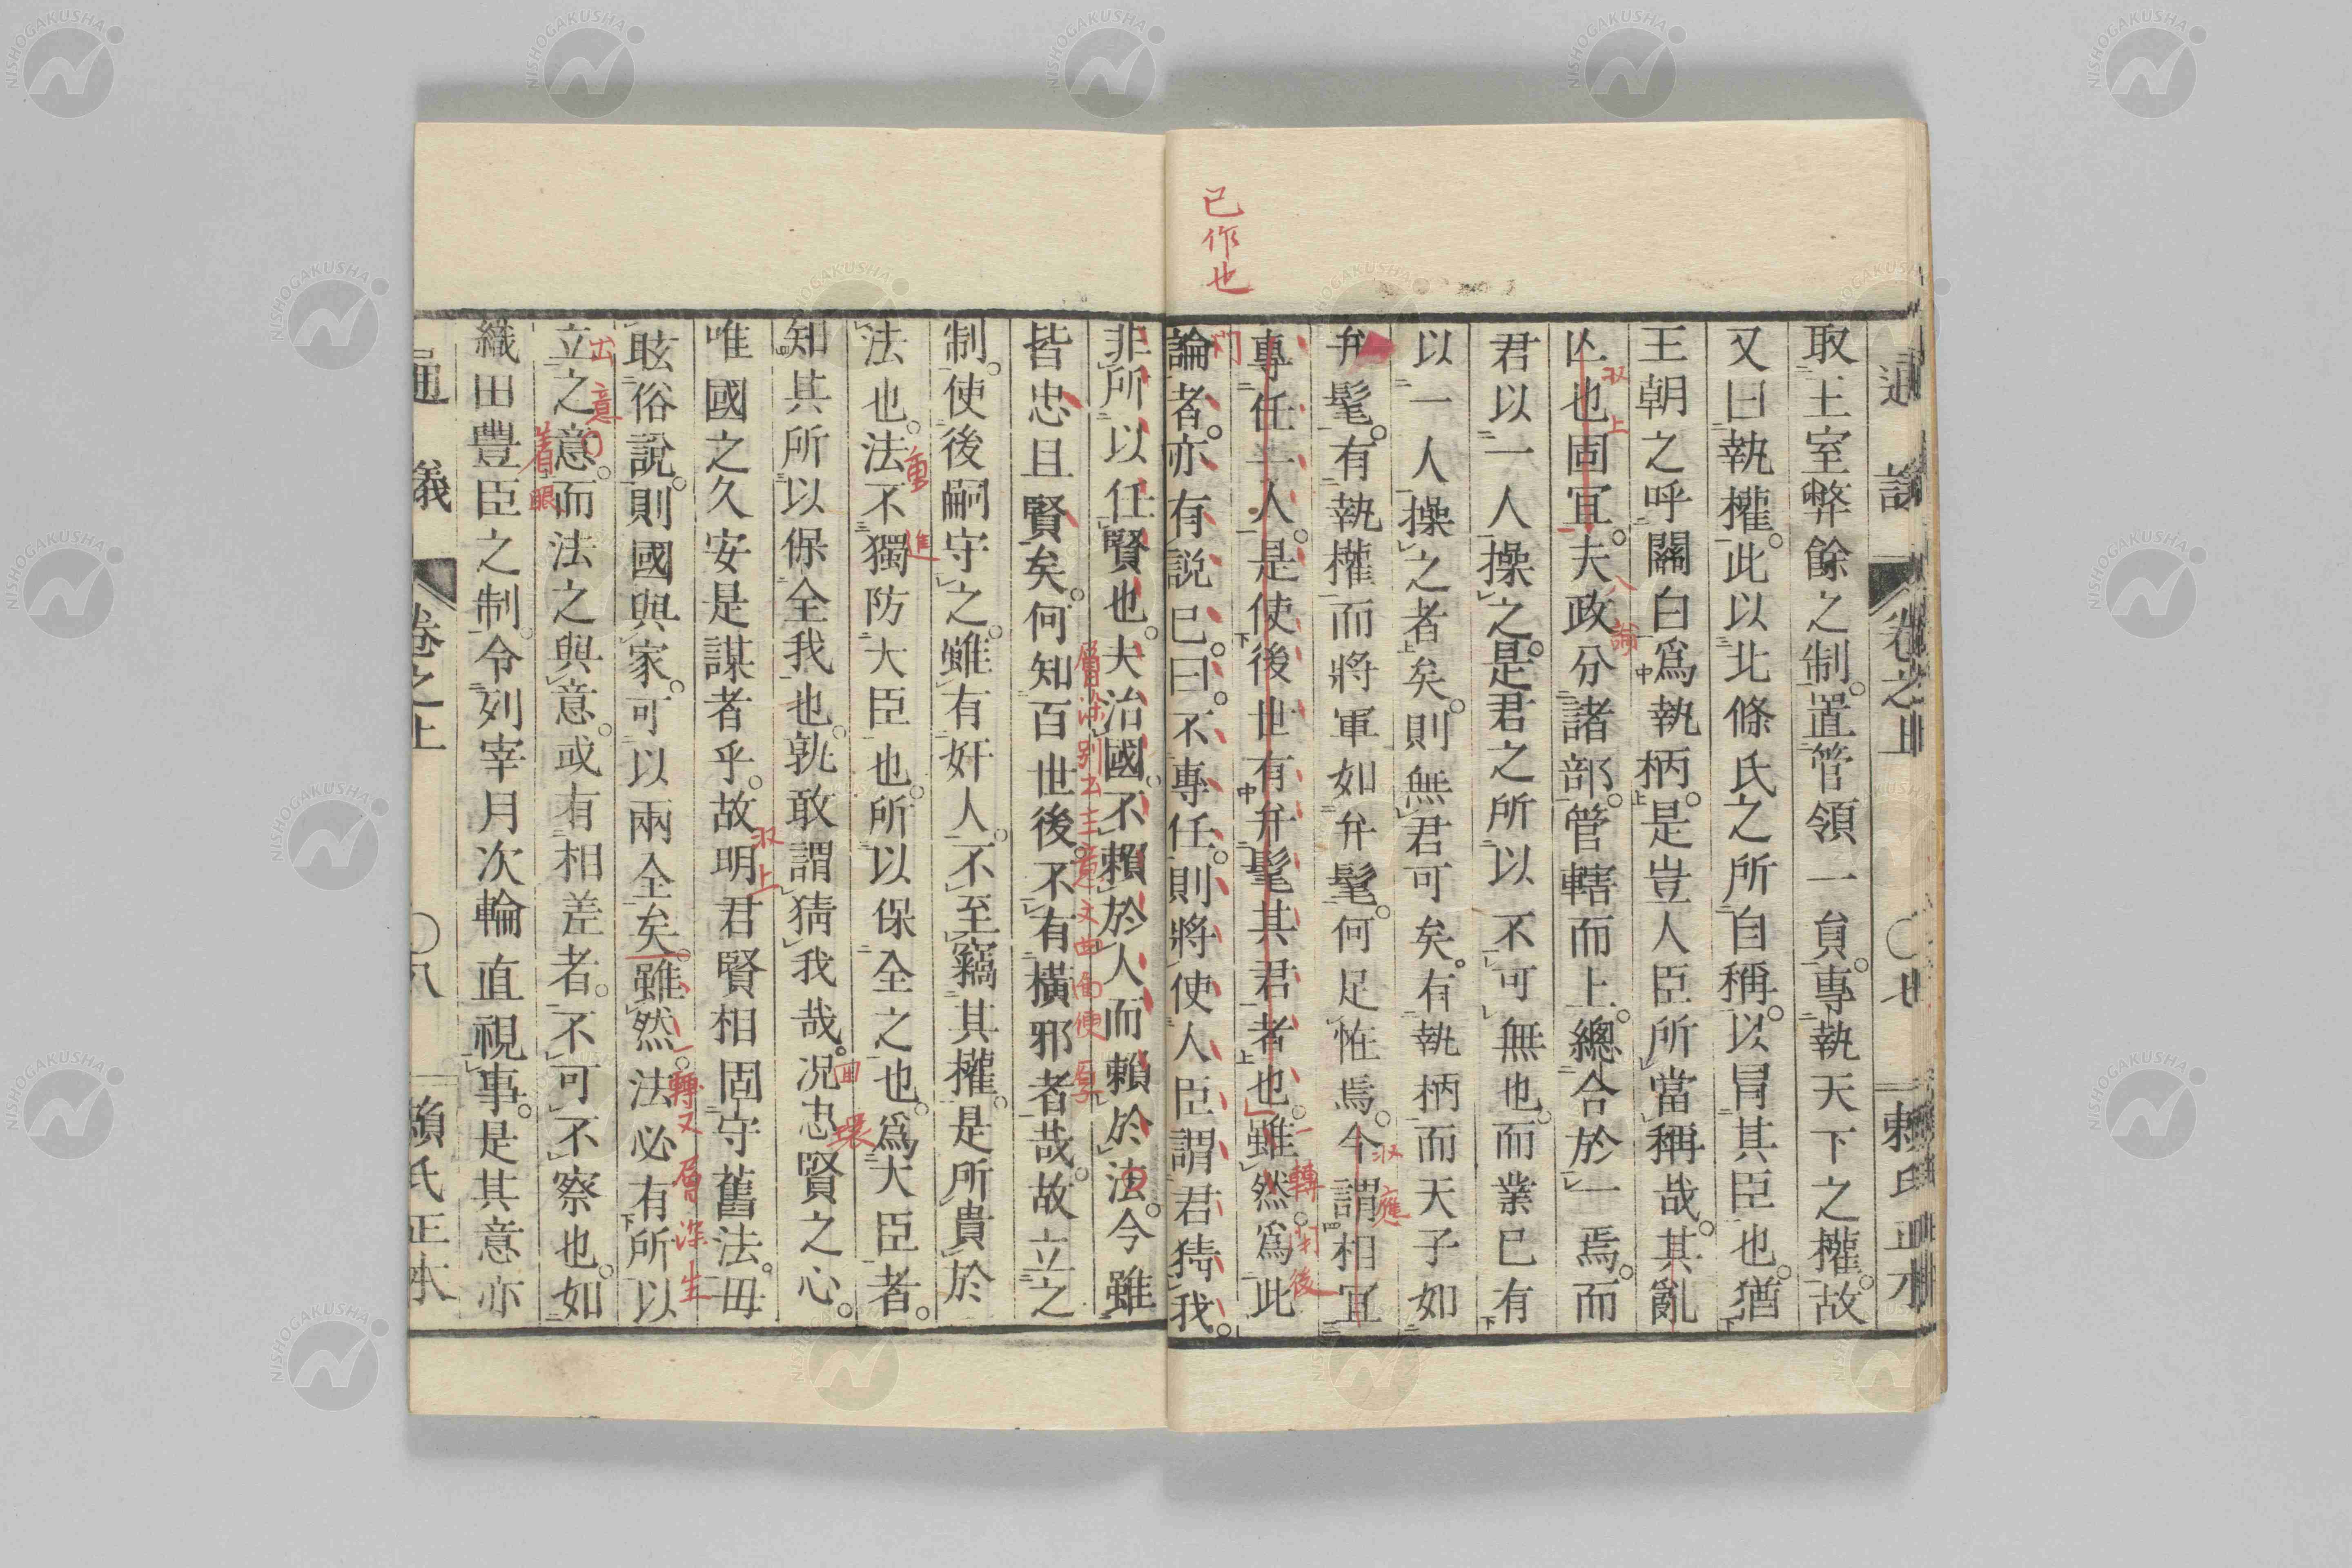 已作也
通議 卷之上 〇七 賴氏正本
取王室弊餘之制。置管領一員。專執天下之權。故
又曰執權。此以北條氏之所自稱。以冒其臣也。猶
王朝之呼關白爲執柄。是豈人臣所當稱哉。其亂
亾也固宜。夫政分諸部。管轄而上。總合於一焉。而
収上
入論
君以一人操之。是君之所以不可無也。而業已有
以一人操之者矣。則無君可矣。有執柄而天子如
弁髦。有執權而將軍如弁髦。何足恠焉。今謂相宜
収應
專任一人。是使後世有弁髦其君者也。雖然爲此
一轉
開後
論者。亦有説已。曰。不專任。則將使人臣謂君猜我。
門
非所以任賢也。夫治國。不賴於人而賴於法。今雖
皆忠且賢矣。何知百世後。不有橫邪者哉。故立之
制。使後嗣守之。雖有奸人。不至竊其權。是所貴於
法也。法不獨防大臣也。所以保全之也。爲大臣者。
重進
知其所以保全我也。孰敢謂猜我哉。況忠賢之心。
回環
唯國之久安是謀者乎。故明君賢相固守舊法。毋
収上
眩俗説。則國與家。可以兩全矣。雖然。法必有所以
一轉又
層深生
立之意。而法之與意。或有相差者。不可不察也。如
出意
着眼
織田豐臣之制。令列宰月次輪直視事。是其意亦
通議 卷之上 〇八 賴氏正本